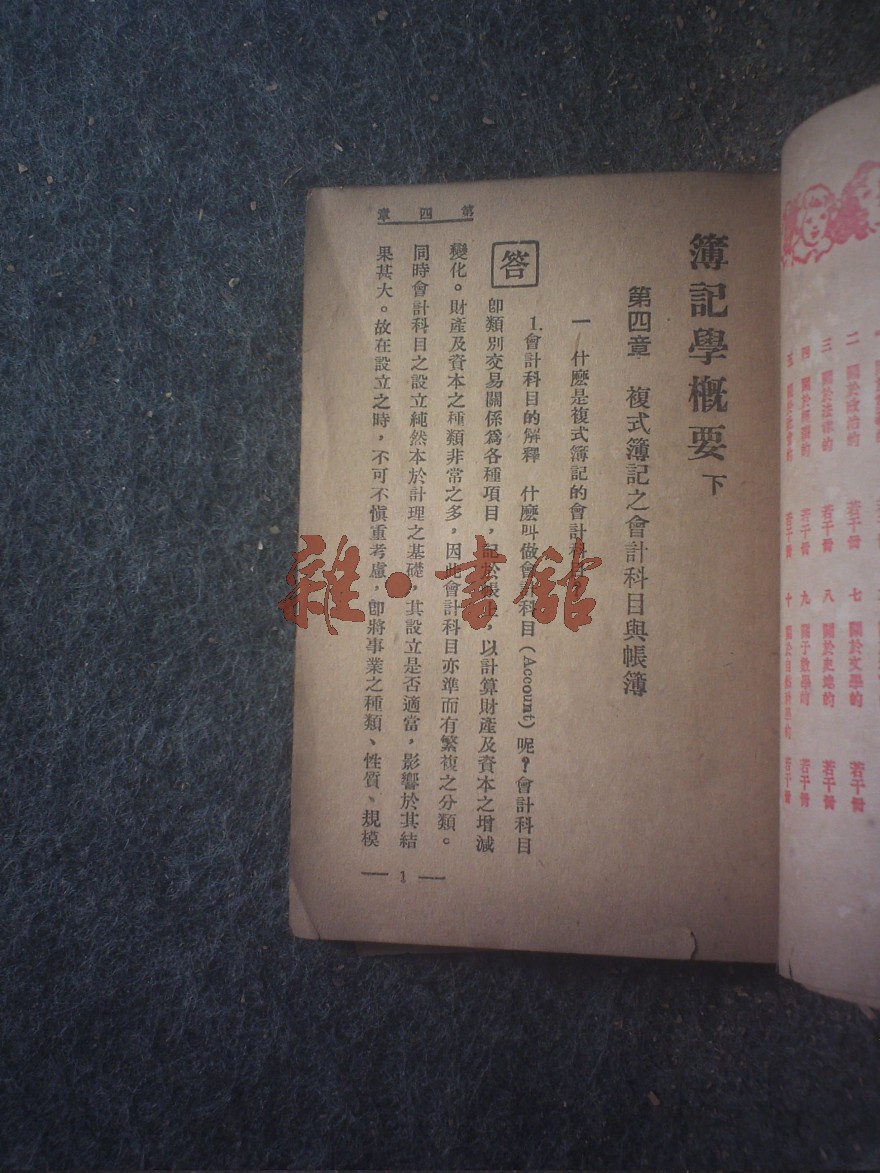 簿記學概要 下
第四章 複式簿記之會計科目與帳簿
一 什麽是複式簿記的會計科目?
答 1.會計科目的解釋 什麽叫做會計科目(Account)呢?會計科目
卽類別交易關係爲各種項目,記於帳上,以計算財產及資本之增減
變化。財產及資本之種類非常之多,因此會計科目亦準而有繁複之分類。
同時會計科目之設立純然本於計理之基礎,其設立是否適當,影響於其結
果甚大。故在設立之時,不可不愼重考慮,卽將事業之種類、性質、規模
第四章
— 1 —
雜·書館
二 關於政治的 若干冊 七 關於文學的 若干冊
三 關於法律的 若干冊 八 關於史地的 若干冊
四 若干冊 九 關于數學的 若干冊
五 若干冊 十 關於自然科學的 若干冊